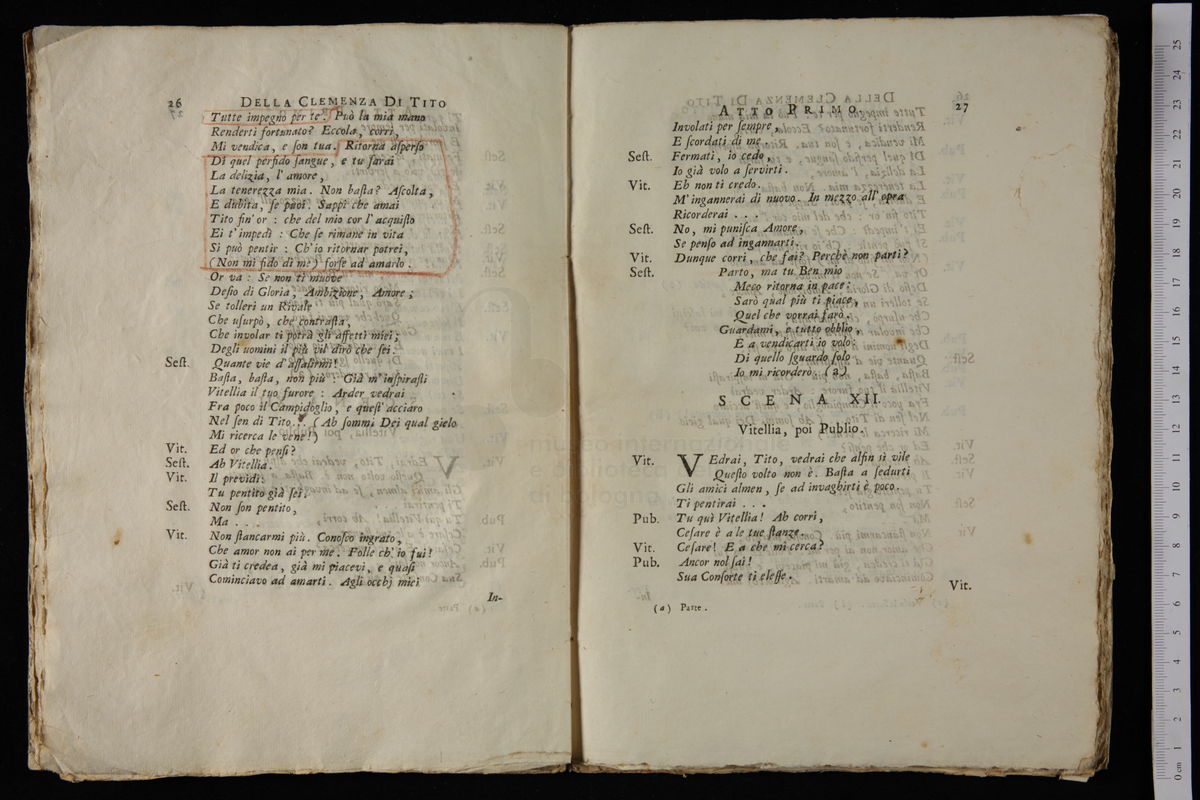 26
DELLA CLEMENZA DI TITO
Tutte impegno per te. Può la mia mano
Renderti fortunato? Eccola, corri,
Mi vendica, e ſon tua. Ritorna aſperſo
Di quel perfido ſangue, e tu ſarai
La delizia, l' amore,
La tenerezza mia. Non baſta? Aſcolta,
E dubita, ſe puoi. Sappi che amai
Tito fin' or : che del mio cor l' acquiſto
Ei t' impedì : Che ſe rimane in vita
Si può pentir : Ch' io ritornar potrei,
(Non mi fido di me) forſe ad amarlo.
Or va : Se non ti muove
Deſio di Gloria, Ambizione, Amore;
Se tolleri un Rivale
Che uſurpò, che contraſta,
Che involar ti potrà gli affetti miei;
Degli uomini il più vil dirò che ſei.
Seſt. Quante vie d' aſſalirmi!
Baſta, baſta, non più : Già m' inſpiraſti
Vitellia il tuo furore : Arder vedrai
Fra poco il Campidoglio, e queſt' acciaro
Nel ſen di Tito... (Ah ſommi Dei qual gielo
Mi ricerca le vene!)
Vit. Ed or che penſi?
Seſt. Ah Vitellia.
Vit. Il previdi:
Tu pentito già ſei.
Seſt. Non ſon pentito,
Ma . . .
Vit. Non ſtancarmi più. Conoſco ingrato,
Che amor non ai per me. Folle ch' io fui!
Già ti credea, già mi piacevi, e quaſi
Cominciavo ad amarti. Agli occhj miei
In-
ATTO PRIMO. 27
Involati per ſempre,
E ſcordati di me.
Seſt. Fermati, io cedo,
Io già volo a ſervirti.
Vit. Eh non ti credo.
M' ingannerai di nuovo. In mezzo all' opra
Ricorderai . . .
Seſt. No, mi puniſca Amore,
Se penſo ad ingannarti.
Vit. Dunque corri, che fai? Perchè non parti?
Seſt. Parto, ma tu Ben mio
Meco ritorna in pace;
Sarò qual più ti piace,
Quel che vorrai farò.
Guardami, e tutto obblio,
E a vendicarti io volo;
Di quello ſguardo ſolo
Io mi ricorderò. (a)
SCENA XII.
Vitellia, poi Publio.
Vit. VEdrai, Tito, vedrai che alfin sì vile
Queſto volto non è. Baſta a ſedurti
Gli amici almen, ſe ad invaghirti è poco.
Ti pentirai . . .
Pub. Tu quì Vitellia! Ah corri,
Ceſare è a le tue ſtanze.
Vit. Ceſare! E a che mi cerca?
Pub. Ancor nol ſai!
Sua Conſorte ti eleſſe.
Vit.
(a) Parte.